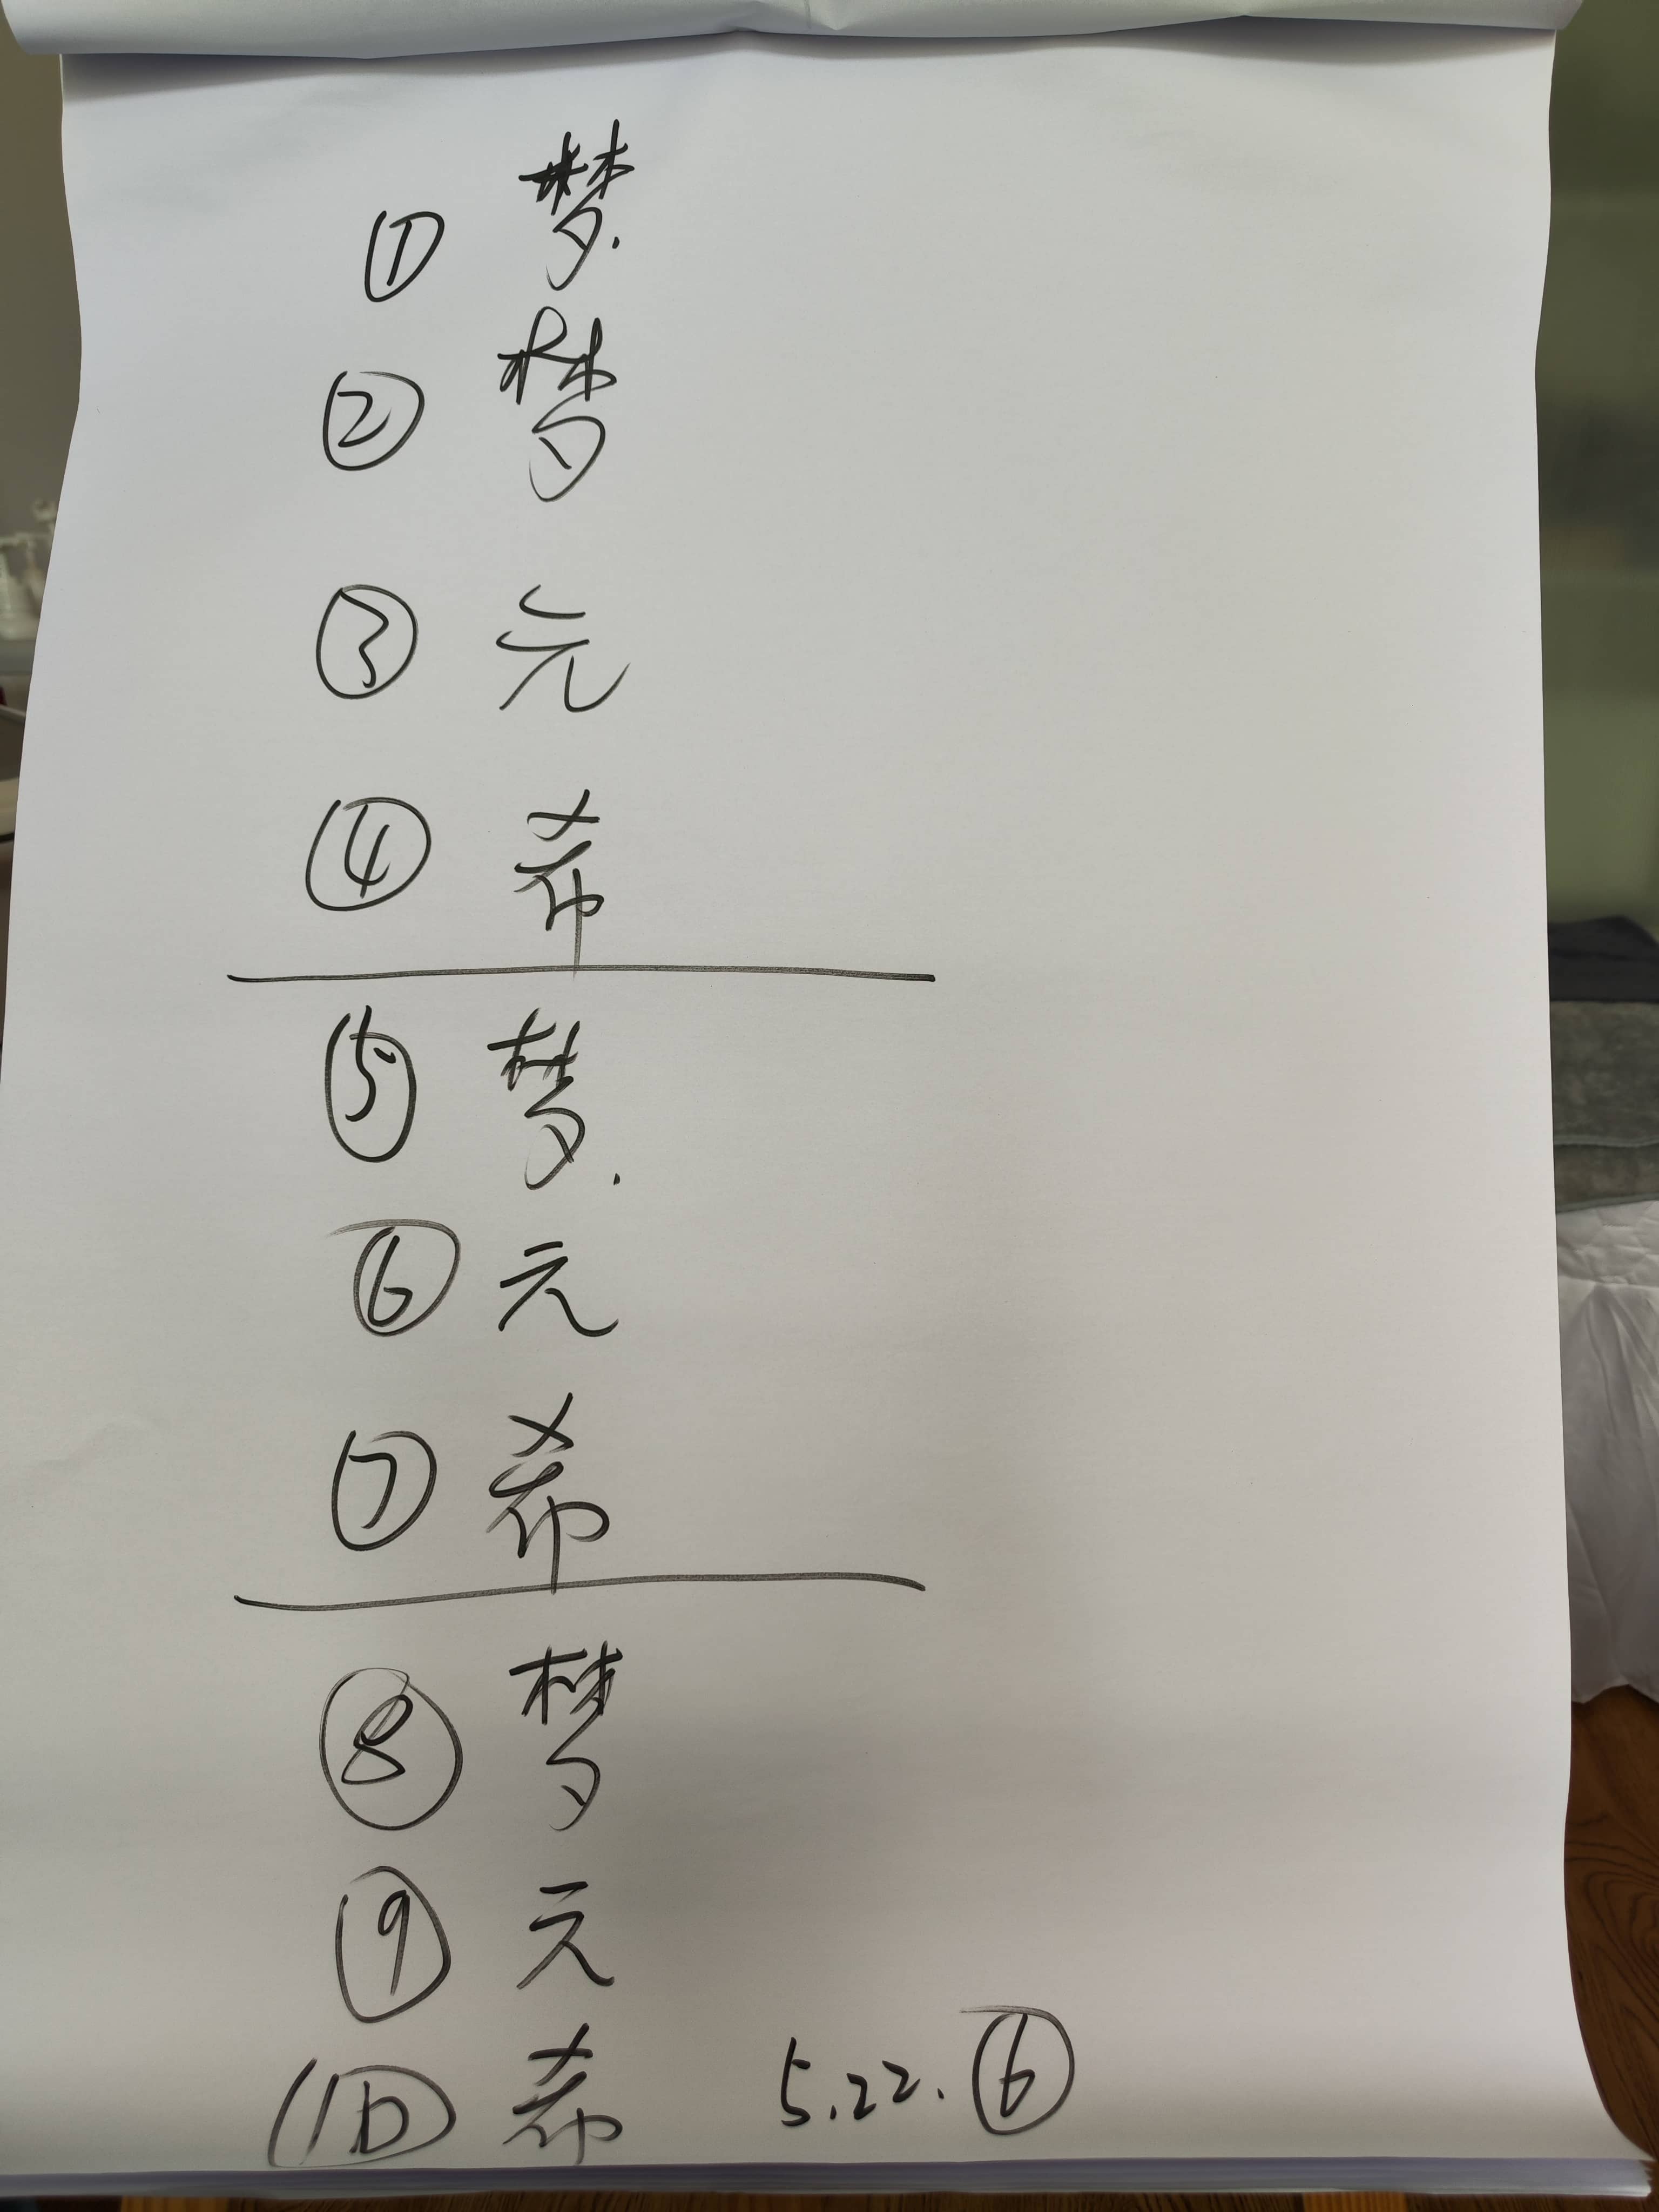 ① 梦.
② 梦
③ 元
④ 希
⑤ 梦.
⑥ 元
⑦ 希
⑧ 梦
⑨ 元
⑩ 希 5.22.⑥